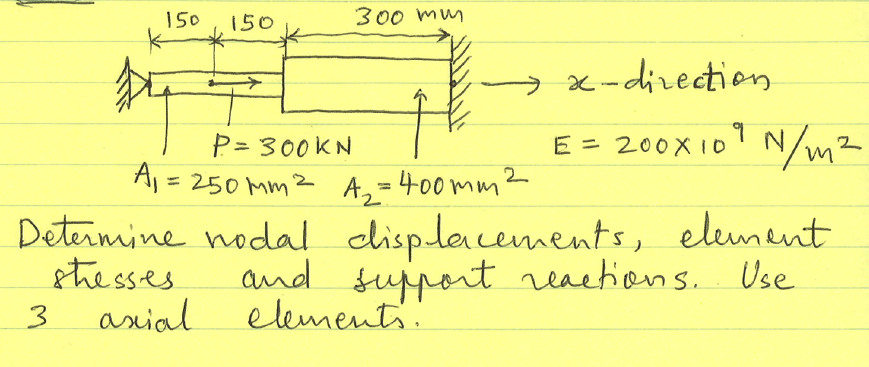 150 150 300 mm
→ x-direction
P = 300KN E = 200X10⁹ N/m²
A₁ = 250mm² A₂ = 400mm²
Determine nodal displacements, element
stresses and support reactions. Use
3 axial elements.